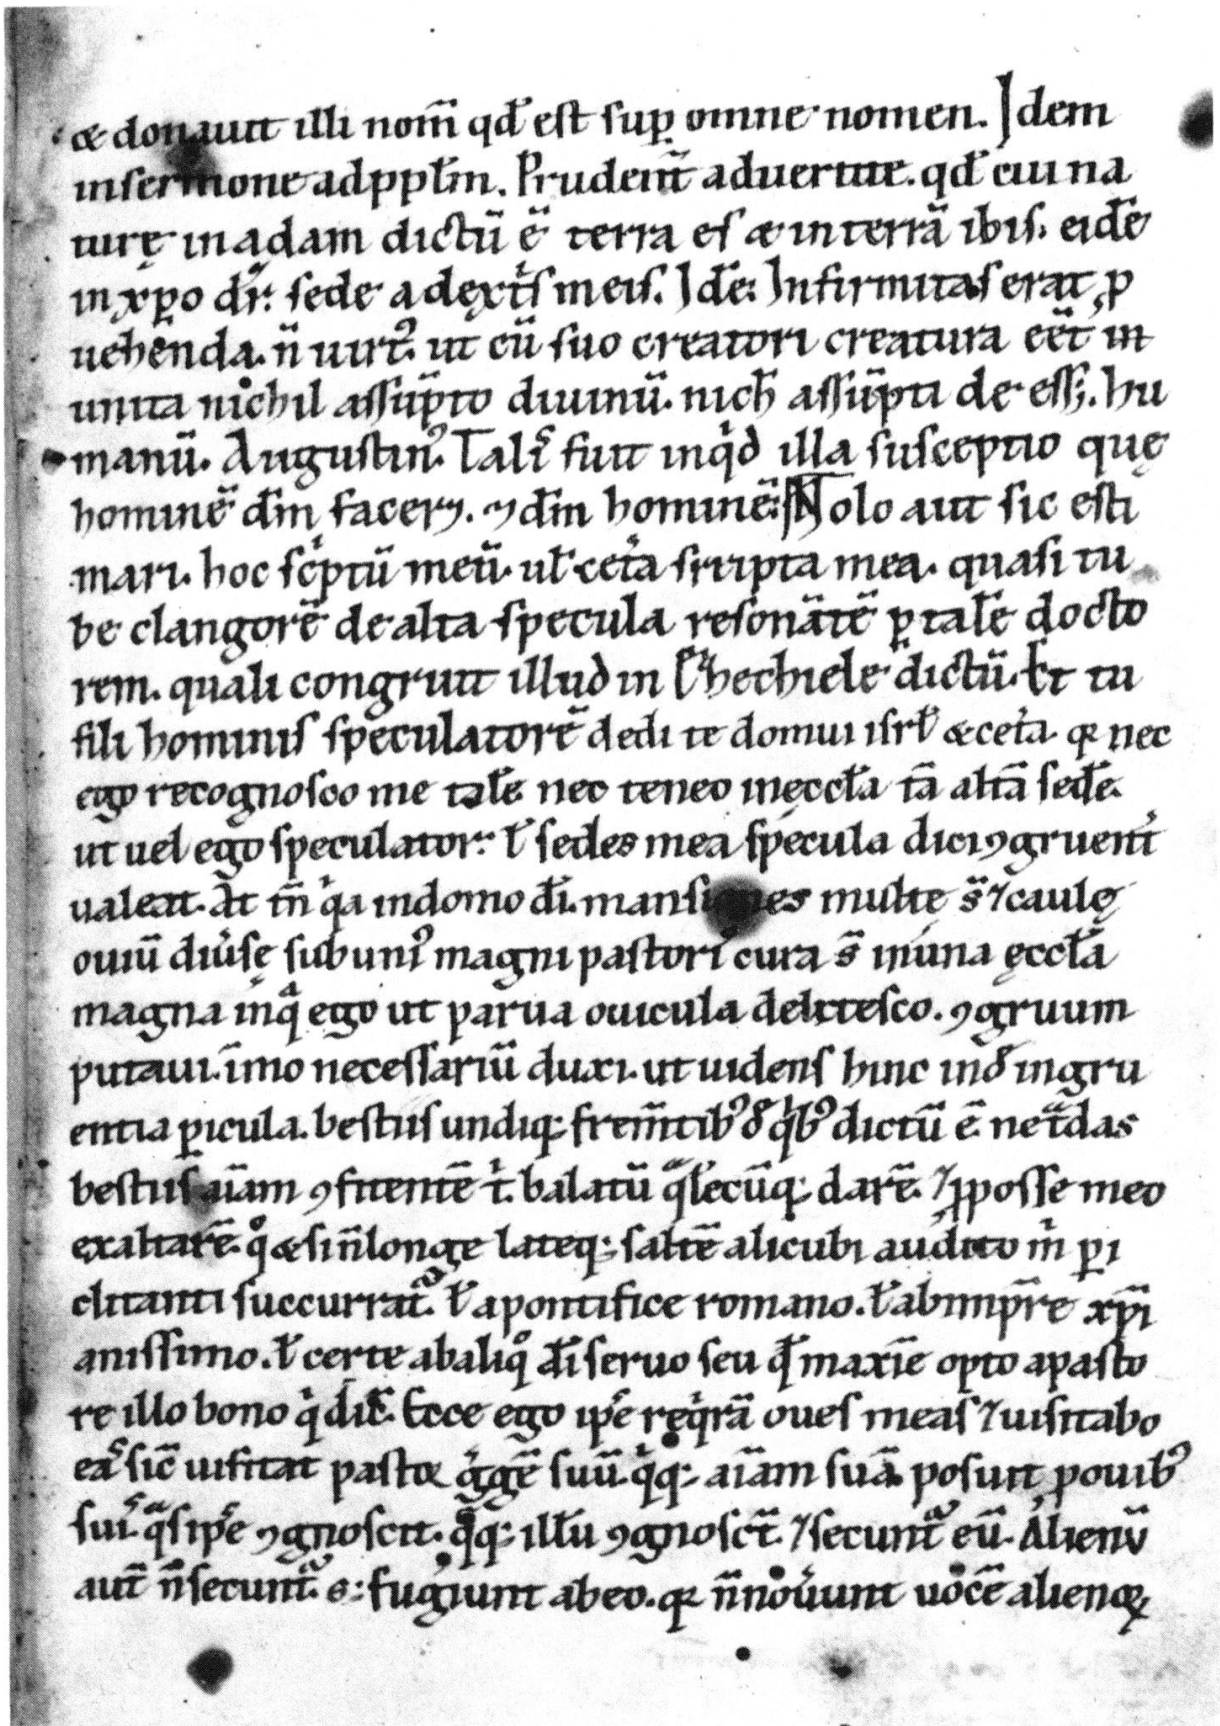 & donauit illi nom̄ qd̄ est sup̱ omne nomen. Idem
in sermone ad ppl̄m. Prudent̄ aduertite. qd̄ cui na
turę in adam dictū ē terra es & in terrā ibis. eidē
in xp̄o dr̄. sede a dext̄s meis. Idē. Infirmitas erat p
uehenda. n̄ uirt᾽. ut cū suo creatori creatura eēt in
unita nichil assūpto diuinū. nich̄ assūpti deess&. hu
manū. Augustin᾽. Talis fuit inqͥd illa susceptio quę
hominē dm̄ facer&. ⁊ dm̄ hominē. Nolo aut sic esti
mari. hoc scͥptū meū. ul̄ cet̄a scripta mea. quasi tu
be clangorē de alta specula resonātē p̱ talē docto
rem. quali congruit illud in hechiele dictū. Et tu
fili hominis speculatorē dedi te domui isrl̄ & cet̄a. qꝛ nec
ego recognosco me talē. nec teneo in ęccl̄a tā altā sedē.
ut uel ego speculator. ł sedes mea specula dici ꝯgruent̄
ualeat. At tn̄ qͥa in domo dī. mansiones multę s̄ ⁊ caulę
ouiū diuͥsę sub uni᾽ magni pastoris cura s̄ in una ęccl̄a
magna in qᵃ ego ut parua ouicula delitesco. ꝯgruum
putaui. īmo necessariū duxi. ut uidens hinc inđ ingru
entia p̱icula. bestiis undiq; frem̄tib᾽ đ qͥb᾽ dictū ē. ne t̄das
bestiis aīam ꝯfitentē t̄. balatū qᵃlēcūq; darē. ⁊ ꝓ posse meo
exaltarē. qͦ & si n̄ longe lateq; saltē alicubi audito m̄ p̱i
clitanti succurrat᷑. ł a pontifice romano. ł ab imp̄re xp̄i
anissimo. ł certe ab aliqͦ dī seruo seu qd̄ maxīe opto a pasto
re illo bono qͥ dic̄. Ecce ego ip̄e reqͥrā oues meas ⁊ uisitabo
eas sic̄ uisitat pastor gͥgē suū. qͥq; aīam suā posuit ꝓ ouib᾽
suis. qᵃs ip̄e ꝯgnoscit. qͦq; illū ꝯgnosct̄. ⁊ secunt᷑ eū. Alienū
aut̄ n̄ secunt᷑. s; fugiunt ab eo. qꝛ n̄ nouͥunt uocē alienoꝝ